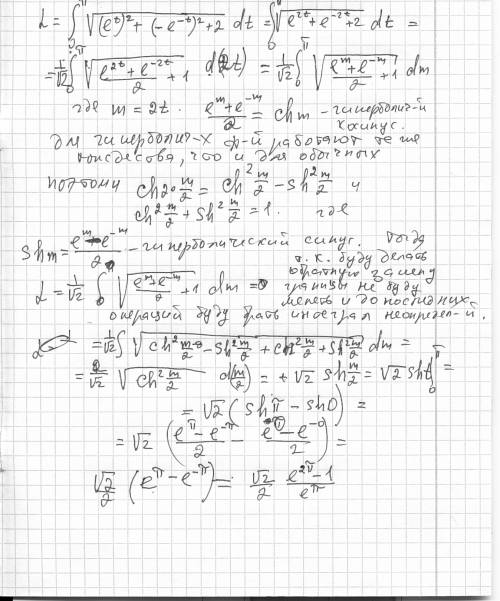 L = ∫₀^π √((e^t)² + (-e^-t)² + 2) dt = ∫₀^π √(e^2t + e^-2t + 2) =
= 1/√2 ∫₀^π √((e^2t + e^-2t)/2 + 1) d(2t) = 1/√2 ∫₀^π √((e^m + e^-m)/2 + 1) dm
где m = 2t. (e^m + e^-m)/2 = ch m - гиперболич-й
косинус.
для гиперболич-х ф-й работают те же
тождества, что и для обычных
поэтому ch 2·m/2 = ch² m/2 - sh² m/2 и
ch² m/2 + sh² m/2 = 1. где
sh m = (e^m - e^-m)/2 - гиперболический синус. Тогда
т.к. буду делать
обратную замену
L = 1/√2 ∫₀^π √((e^m + e^-m)/2 + 1) dm = границы не буду
менять и до последних
операций буду брать интеграл неопредел-й.
= 1/√2 ∫ √(ch² m/2 - sh² m/2 + ch² m/2 + sh² m/2) dm =
= 2/√2 √(ch² m/2) d(m/2) = + √2 sh m/2 = √2 sh t |₀^π =
= √2 (sh π - sh 0) =
= √2 ((e^π - e^-π)/2 - (e^0 - e^-0)/2) =
√2/2 (e^π - e^-π) = √2/2 (e^2π - 1)/e^π